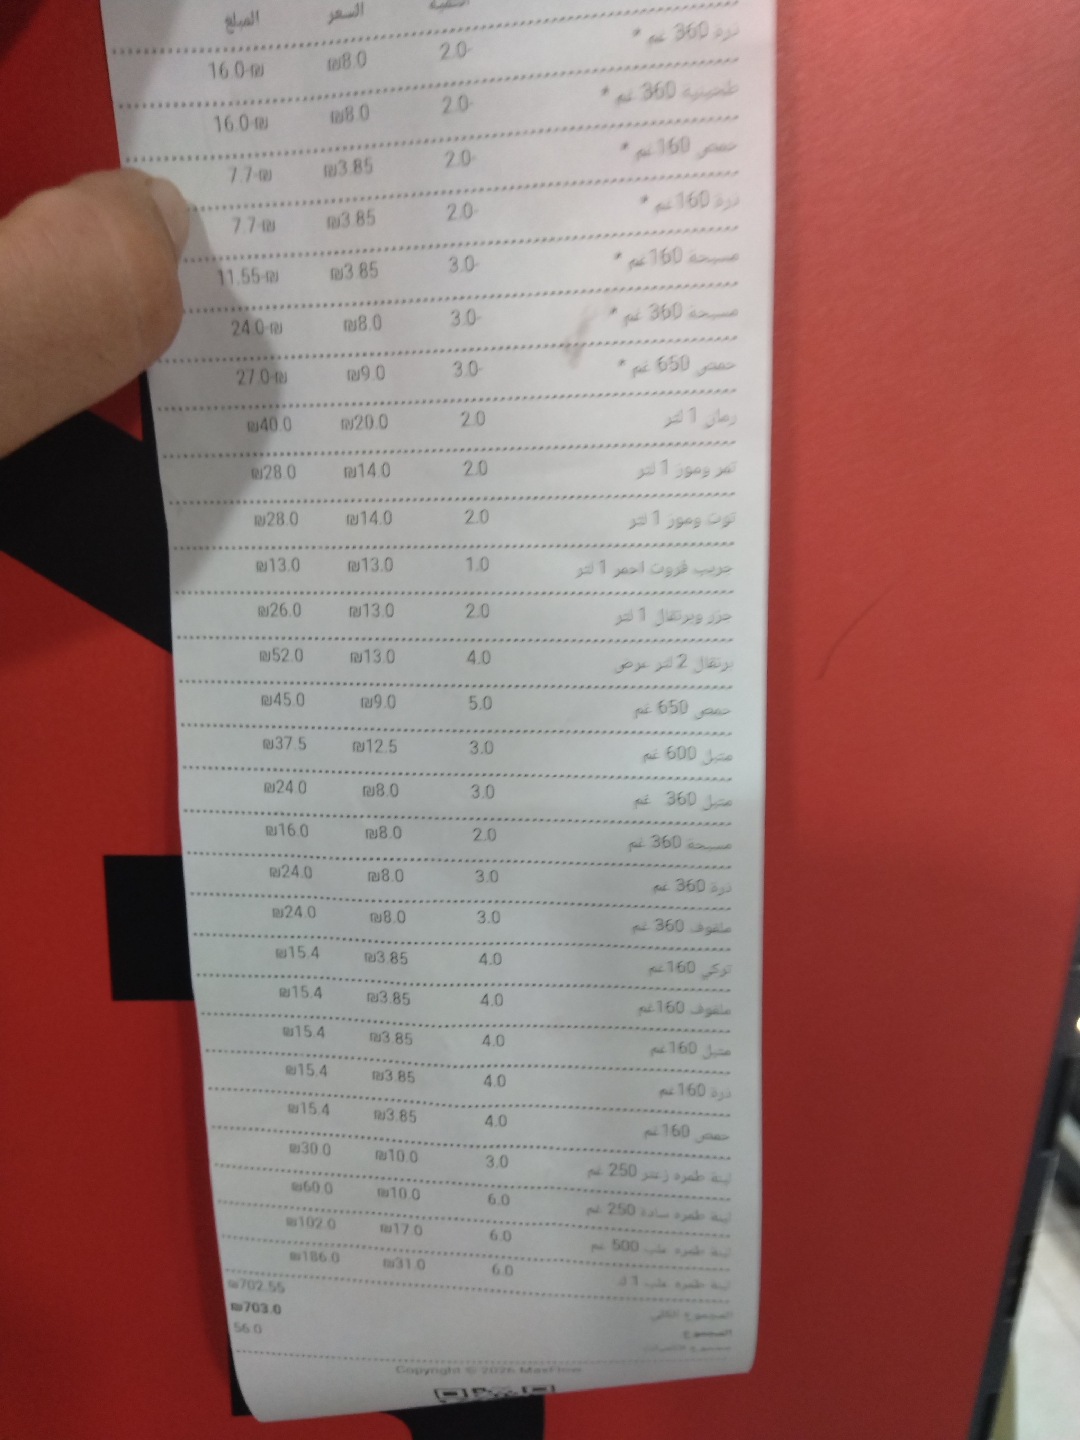 السعر المبلغ
ذرة 360 غم * 2.0- ₪8.0 ₪-16.0
طحينية 360 غم * 2.0- ₪8.0 ₪-16.0
حمص 160غم * 2.0- ₪3.85 ₪-7.7
ذرة 160غم * 2.0- ₪3.85 ₪-7.7
مسبحة 160غم * 3.0- ₪3.85 ₪-11.55
مسبحة 360 غم * 3.0- ₪8.0 ₪-24.0
حمص 650 غم * 3.0- ₪9.0 ₪-27.0
رمان 1 لتر 2.0 ₪20.0 ₪40.0
تمر وموز 1 لتر 2.0 ₪14.0 ₪28.0
توت وموز 1 لتر 2.0 ₪14.0 ₪28.0
جريب فروت احمر 1 لتر 1.0 ₪13.0 ₪13.0
جزر وبرتقال 1 لتر 2.0 ₪13.0 ₪26.0
برتقال 2 لتر عرض 4.0 ₪13.0 ₪52.0
حمص 650 غم 5.0 ₪9.0 ₪45.0
متبل 600 غم 3.0 ₪12.5 ₪37.5
متبل 360 غم 3.0 ₪8.0 ₪24.0
مسبحة 360 غم 2.0 ₪8.0 ₪16.0
ذرة 360 غم 3.0 ₪8.0 ₪24.0
ملفوف 360 غم 3.0 ₪8.0 ₪24.0
تركي 160غم 4.0 ₪3.85 ₪15.4
ملفوف 160غم 4.0 ₪3.85 ₪15.4
متبل 160غم 4.0 ₪3.85 ₪15.4
ذرة 160غم 4.0 ₪3.85 ₪15.4
حمص 160غم 4.0 ₪3.85 ₪15.4
لبنة طمره زعتر 250 غم 3.0 ₪10.0 ₪30.0
لبنة طمره سادة 250 غم 6.0 ₪10.0 ₪60.0
لبنة طمره علب 500 غم 6.0 ₪17.0 ₪102.0
لبنة طمره علب 1 ك 6.0 ₪31.0 ₪186.0
المجموع ₪702.55
المجموع ₪703.0
مجموع 56.0
Copyright © 2026 MaxFlow